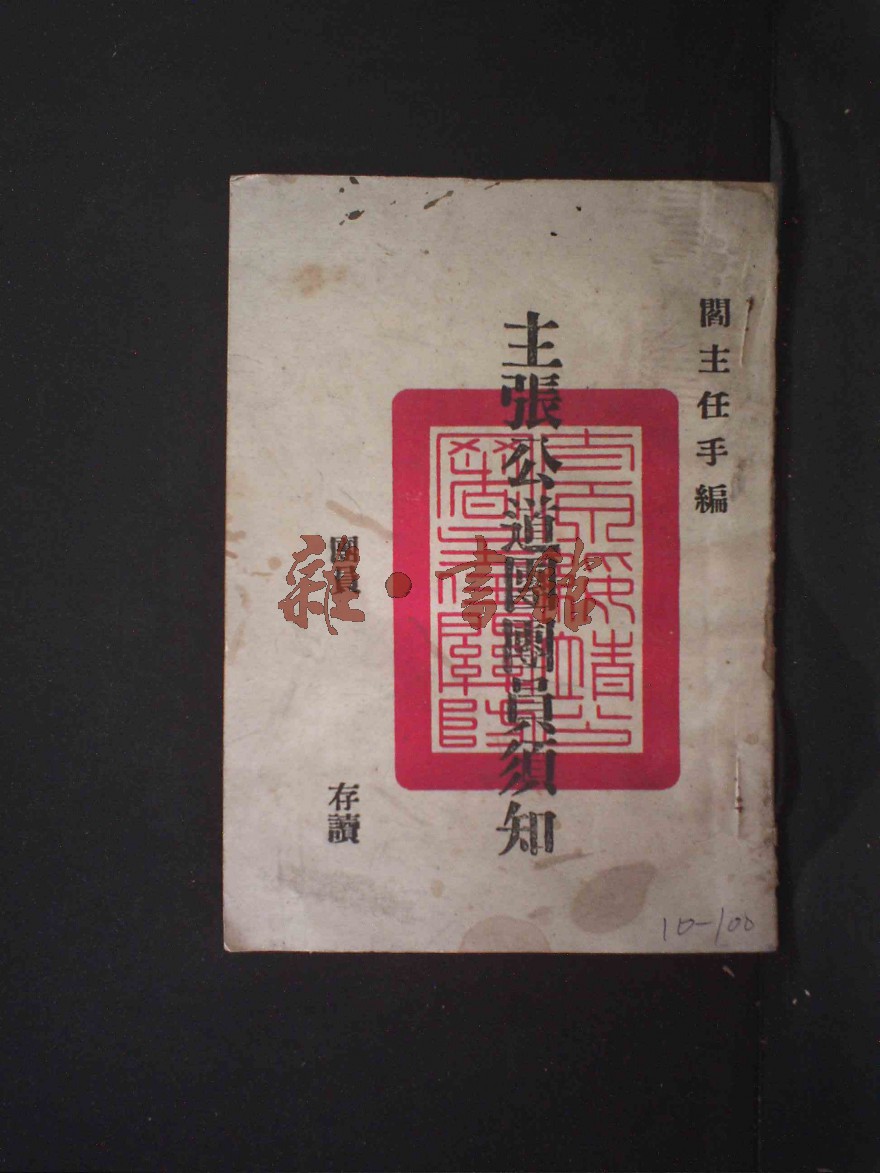 閻主任手編
主張公道團團員須知
團員
存讀
雜·書館
10-100